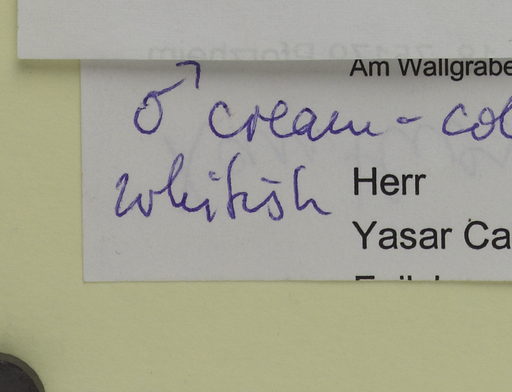 Am Wallgrabe
♂ cream - col
whitish
Herr
Yasar Ca